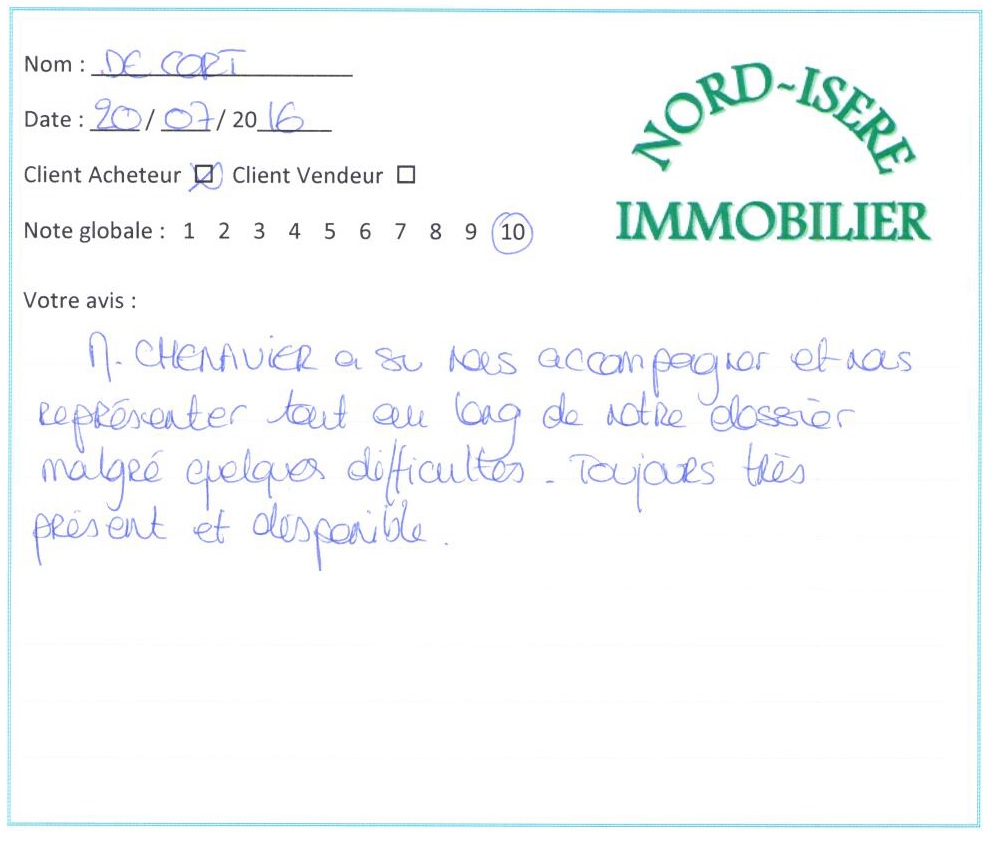 Nom : DE CORT
Date : 20/07/2016
Client Acheteur ☒ Client Vendeur ☐
Note globale : 1 2 3 4 5 6 7 8 9 10
NORD-ISERE
IMMOBILIER
Votre avis :
M. CHENAVIER a su nous accompagner et nous
représenter tout au long de notre dossier
malgré quelques difficultés. Toujours très
présent et disponible.